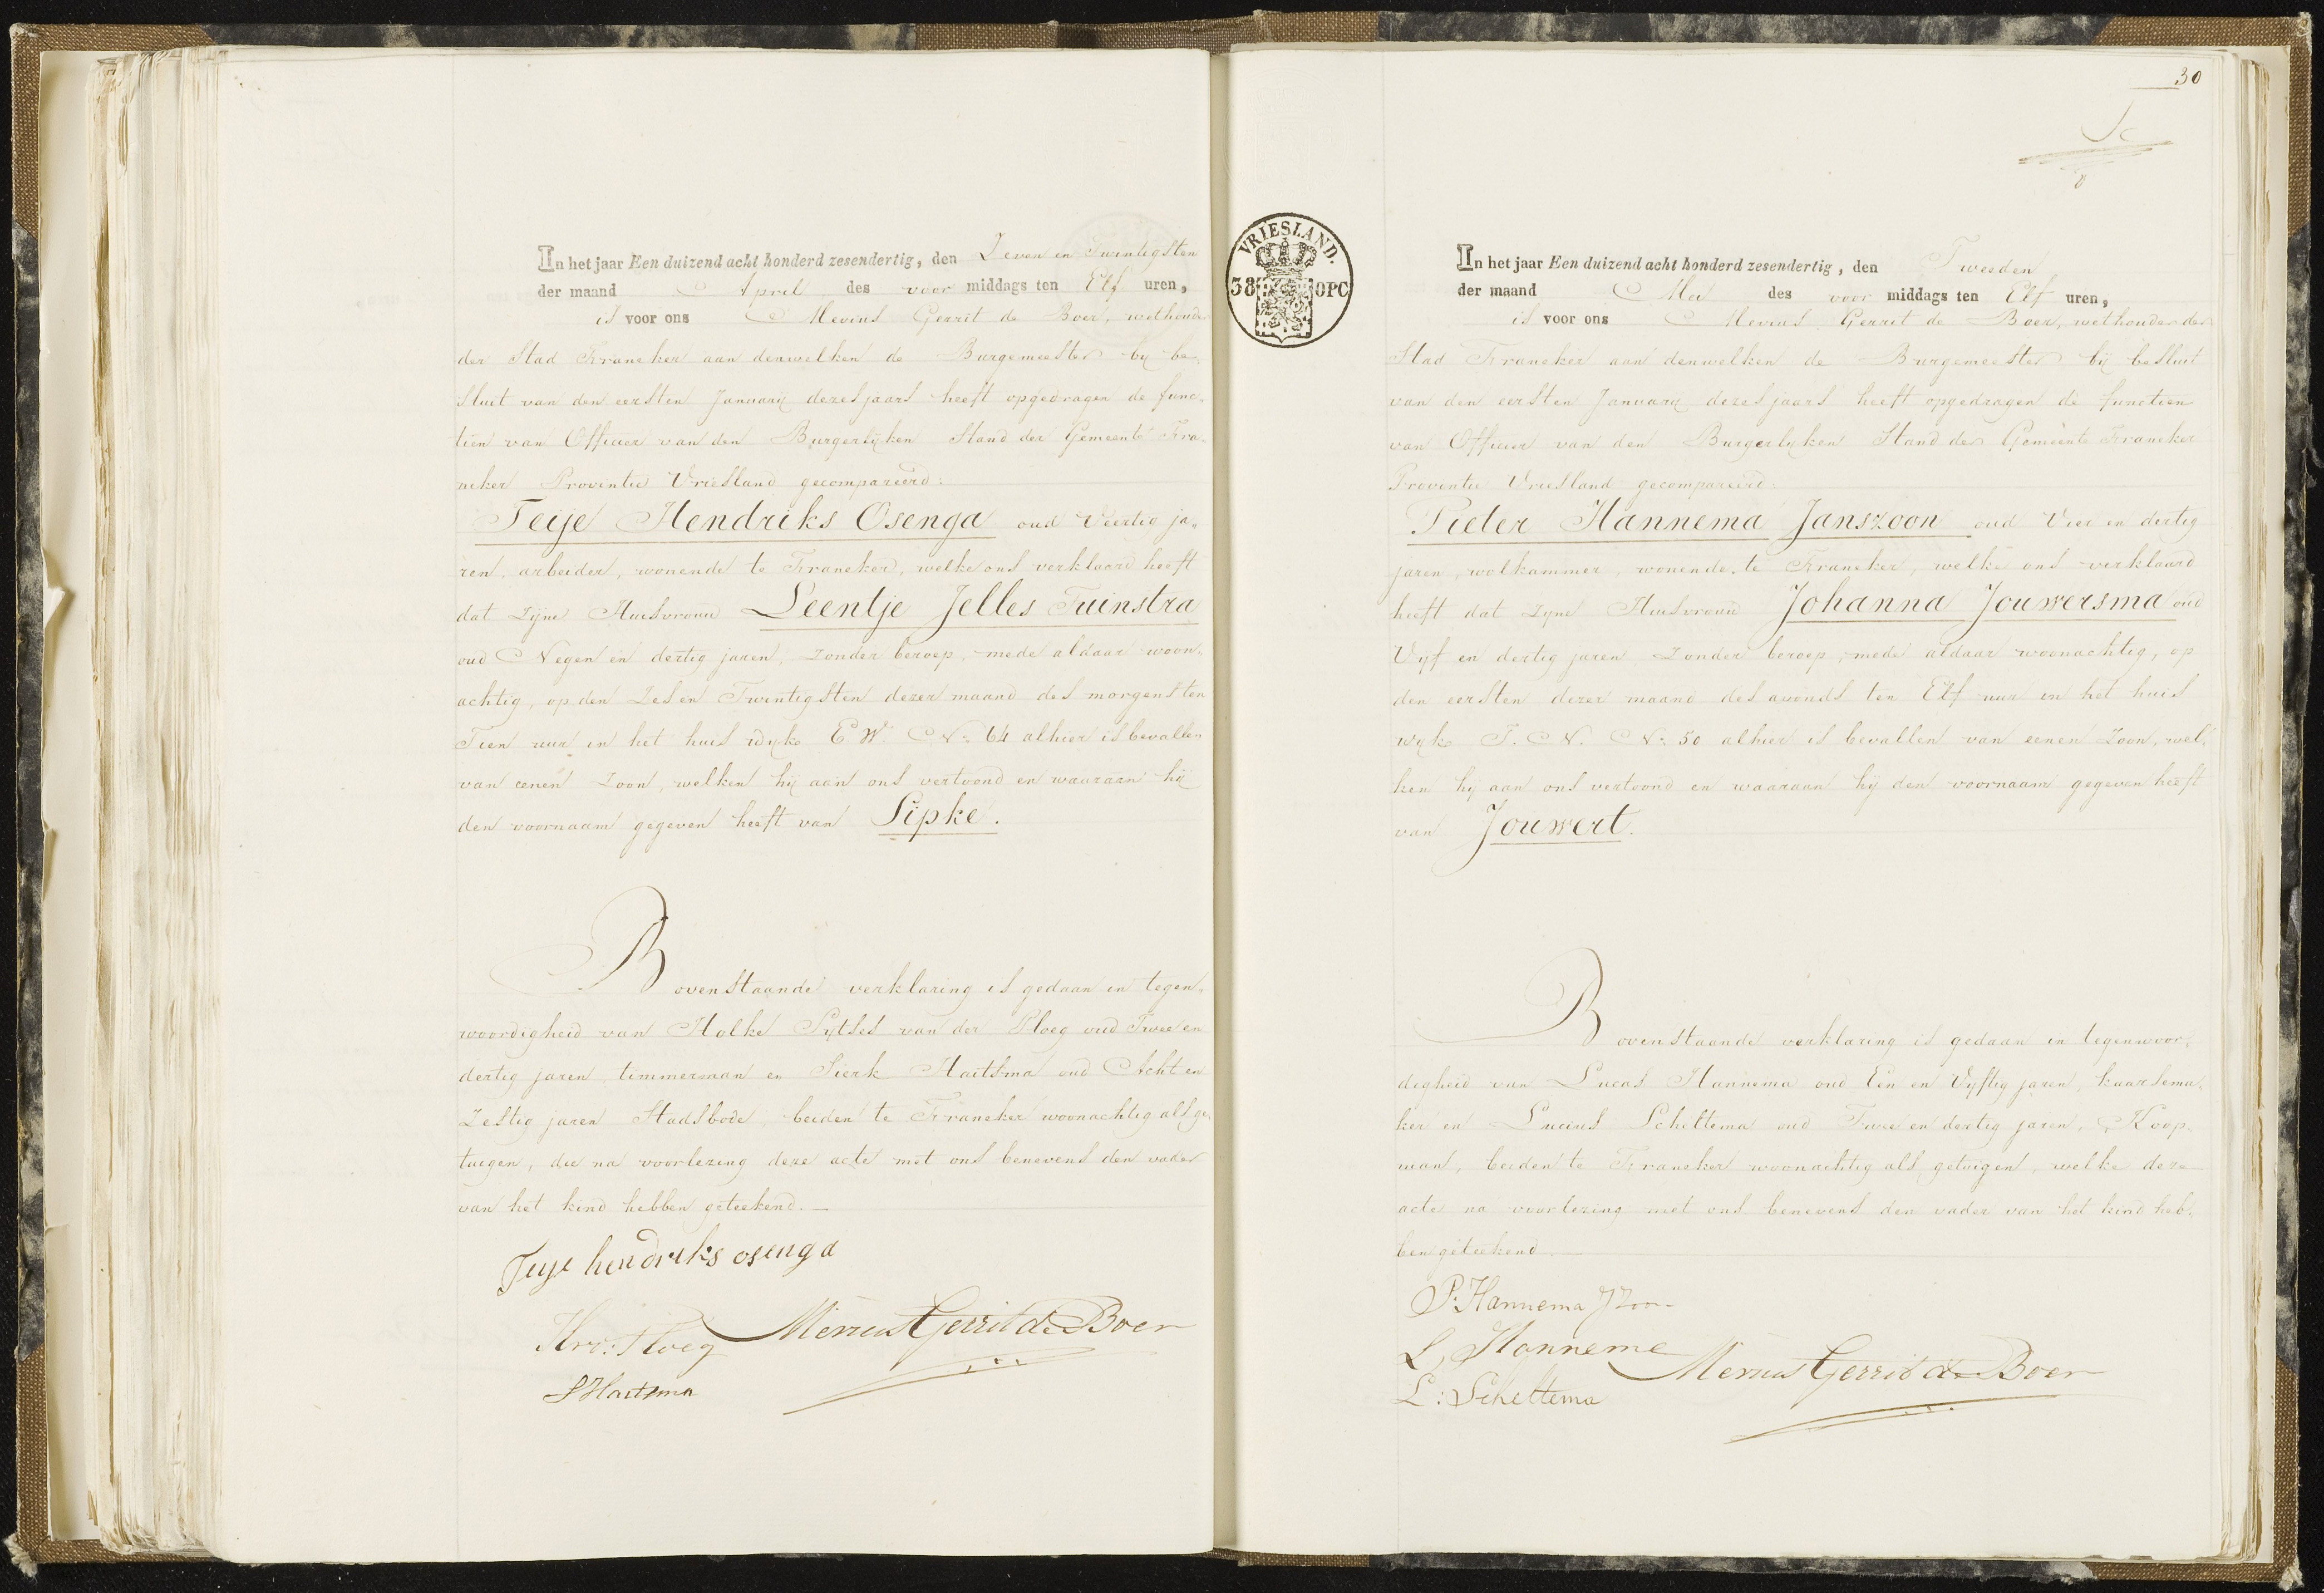 In het jaar Een duizend acht honderd zesendertig, den Zeven en Twintigsten
der maand April des voor middags ten Elf uren,
is voor ons Mevius Gerrit de Boer, wethouder
der Stad Franeker aan denwelken de Burgemeester by be-
sluit van den eersten January dezes jaars heeft opgedragen de func-
tien van Officier van den Burgerlyken Stand der Gemeente Fra-
neker Provintie Vriesland gecompareerd:
Teije Hendriks Osenga oud Veertig ja-
ren, arbeider, wonende te Franeker, welke ons verklaard heeft
dat zijne Huisvrouw Leentje Jelles Tuinstra
oud Negen en dertig jaren, zonder beroep, mede aldaar woon-
achtig, op den Zes en Twintigsten dezer maand des morgens ten
Tien uur in het huis wyk E W. No. 64 alhier is bevallen
van eenen Zoon, welken hij aan ons vertoond en waaraan hij
den voornaam gegeven heeft van Sipke.
Bovenstaande verklaring is gedaan in tegen-
woordigheid van Holke Sytses van der Ploeg oud Twee en
dertig jaren timmerman en Sierk Haitsma oud Acht en
Zestig jaren Stadsbode, beiden te Franeker woonachtig als ge-
tuigen, die na voorlezing deze acte met ons benevens den vader
van het kind hebben geteekend.
Teije hendriks osenga
Mevius Gerrit de Boer
HvdPloeg
SHaitsma
30
VRIESLAND.
38 OPC
In het jaar Een duizend acht honderd zesendertig, den Tweeden
der maand Mei des voor middags ten Elf uren,
is voor ons Mevius Gerrit de Boer, wethouder der
Stad Franeker aan denwelken de Burgemeester bij besluit
van den eersten January dezes jaars heeft opgedragen de functien
van Officier van den Burgerlyken Stand der Gemeente Franeker
Provintie Vriesland gecompareerd:
Pieter Hannema Janszoon oud Vier en dertig
jaren, wolkammer, wonende te Franeker, welke ons verklaard
heeft dat zyne Huisvrouw Johanna Jouwersma oud
Vyf en dertig jaren zonder beroep, mede aldaar woonachtig, op
den eersten dezer maand des avonds ten Elf uur in het huis
wyk T. N. No. 50 alhier is bevallen van eenen Zoon, wel-
ken hij aan ons vertoond en waaraan hij den voornaam gegeven heeft
van Jouwert.
Bovenstaande verklaring is gedaan in tegenwoor-
digheid van Lucas Hannema oud Een en Vyftig jaren, kaarsema-
ker en Lucius Scheltema oud Twee en dertig jaren, Koop-
man, beiden te Franeker woonachtig als getuigen, welke deze
acte na voorlezing met ons benevens den vader van het kind heb-
ben geteekend
P. Hannema JZoon
L Hannema
Mevius Gerrit de Boer
L: Scheltema